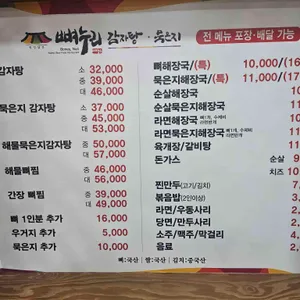 뼈누리 감자탕 · 묵은지
전 메뉴 포장·배달 가능
감자탕 소 32,000
중 39,000
대 46,000
묵은지 감자탕 소 37,000
중 45,000
대 53,000
해물묵은지감자탕 소 50,000
대 57,000
해물뼈찜 중 46,000
대 56,000
간장 뼈찜 중 39,000
대 49,000
뼈 1인분 추가 16,000
우거지 추가 5,000
묵은지 추가 10,000
뼈해장국/(특) 10,000/(16
묵은지해장국/(특) 11,000/(17
순살해장국
순살묵은지해장국
라면해장국
라면묵은지해장국
육개장/갈비탕
돈가스 순살 9
치즈 10
찐만두(고기/김치) 7,
볶음밥(2인이상) 3,
라면/우동사리 2,
당면/만두사리 2,
소주/맥주/막걸리 4,
음료 2,
뼈:국산 | 쌀:국산 | 김치:중국산